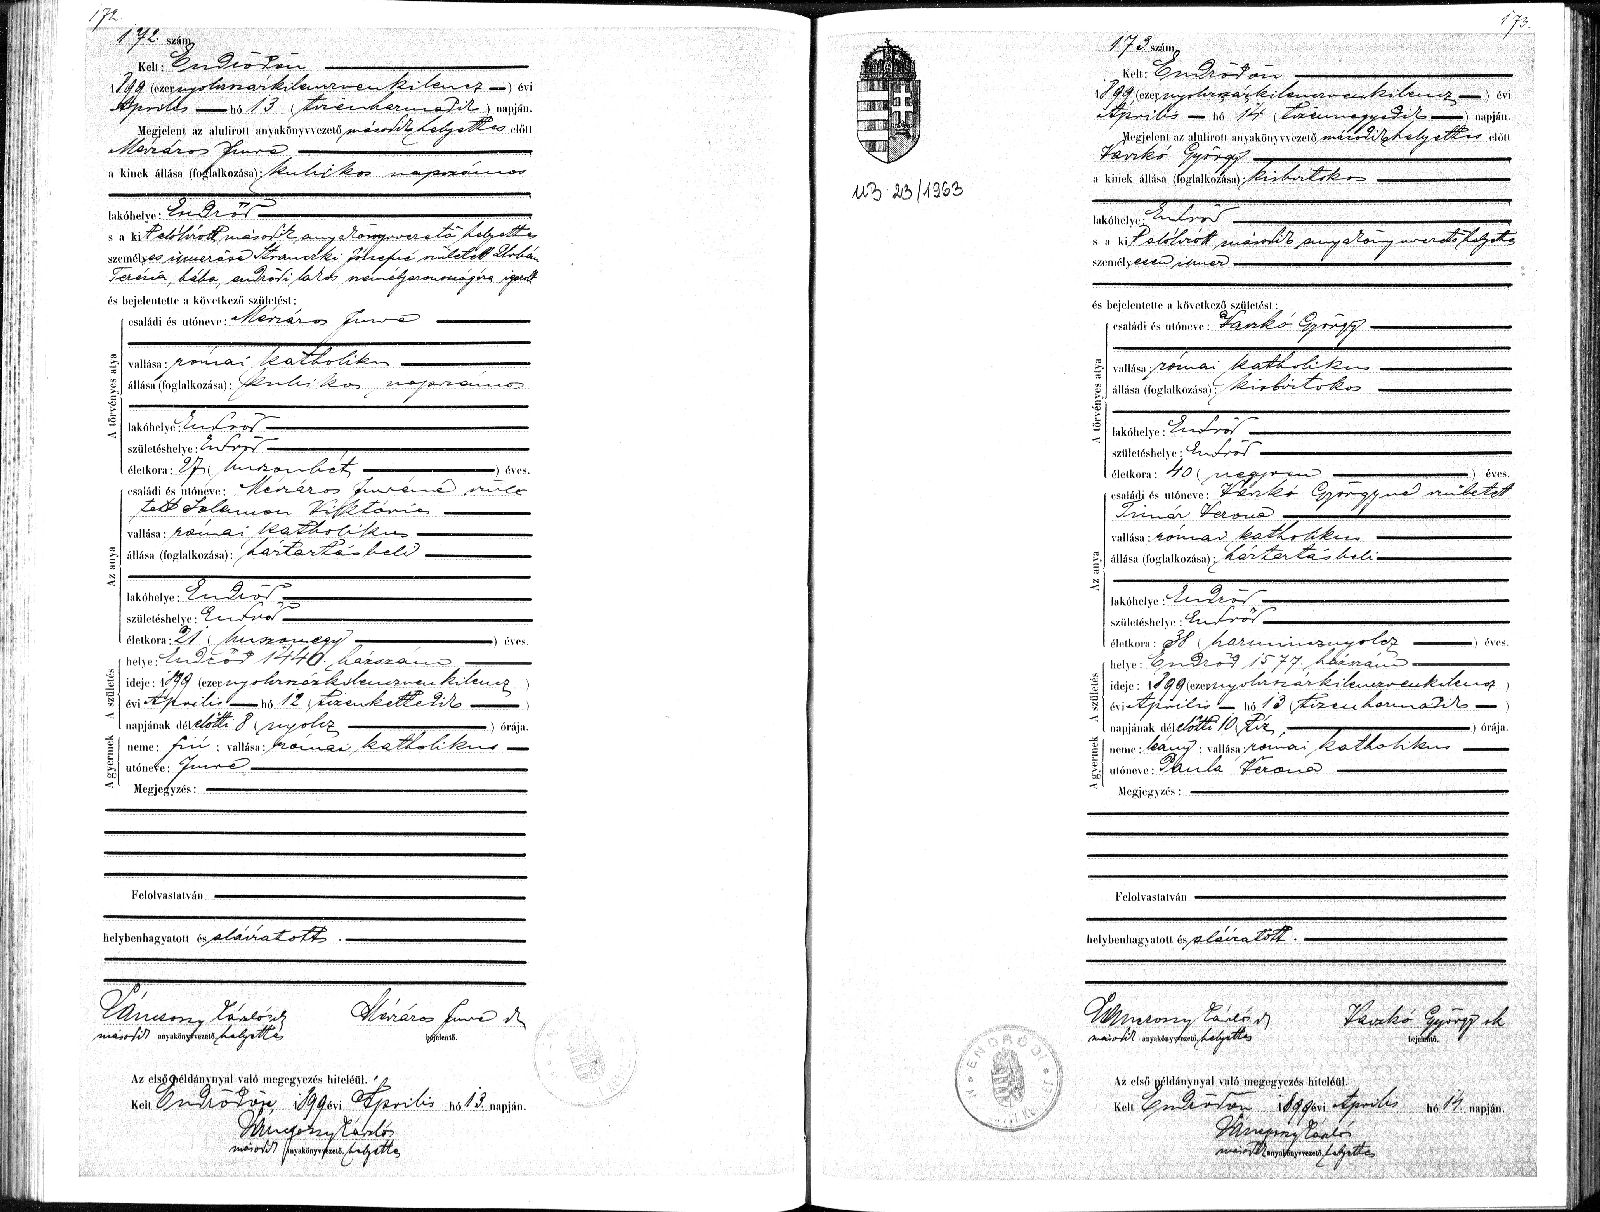 172
172 szám.
Kelt: Endrődön
1899 (ezernyolczszázkilenczvenkilencz) évi
Április hó 13 (tizenharmadik) napján.
Megjelent az alulirott anyakönyvvezető második helyettes előtt
Mészáros Imre
a kinek állása (foglalkozása): kubikos napszámos
lakóhelye: Endrőd
s a kit alólírott második anyakönyvvezető helyettes
személyes ismerőse született
Terézia, bába, endrődi lakos személyazonosságára
és bejelentette a következő születést:
A törvényes atya
családi és utóneve: Mészáros Imre
vallása: római katholikus
állása (foglalkozása): kubikos, napszámos
lakóhelye: Endrőd
születéshelye: Endrőd
életkora: 27 (huszonhét) éves.
Az anya
családi és utóneve: Mészáros Imréné szüle
tett Salamon Viktória
vallása: római katholikus
állása (foglalkozása): háztartásbeli
lakóhelye: Endrőd
születéshelye: Endrőd
életkora: 21 (huszonegy) éves.
A születés
helye: Endrőd 1440 házszám
ideje: 1899 (ezernyolczszázkilenczvenkilencz)
évi Április hó 12 (tizenkettedik)
napjának délelőtti 8 (nyolcz) órája.
A gyermek
neme: fiú; vallása: római katholikus
utóneve: Imre
Megjegyzés:
Felolvastatván
helybenhagyatott és aláiratott.
Mészáros Imre
második anyakönyvvezető helyettes
bejelentő.
Az első példánynyal való megegyezés hiteléül.
Kelt Endrődön, 1899 évi Április hó 13. napján.
második anyakönyvvezető helyettes
173
173 szám.
Kelt: Endrődön
1899 (ezernyolczszázkilenczvenkilencz) évi
Április hó 14 (tizennegyedik) napján.
Megjelent az alulirott anyakönyvvezető második helyettes előtt
Vaszkó György
a kinek állása (foglalkozása): kisbirtokos
lakóhelye: Endrőd
s a kit alólírott második anyakönyvvezető helyettes
személyesen ismer
és bejelentette a következő születést:
A törvényes atya
családi és utóneve: Vaszkó György
vallása: római katholikus
állása (foglalkozása): kisbirtokos
lakóhelye: Endrőd
születéshelye: Endrőd
életkora: 40 (negyven) éves.
Az anya
családi és utóneve: Vaszkó Györgyné született
Timár Verona
vallása: római katholikus
állása (foglalkozása): háztartásbeli
lakóhelye: Endrőd
születéshelye: Endrőd
életkora: 38 (harmincznyolcz) éves.
A születés
helye: Endrőd 1577 házszám
ideje: 1899 (ezernyolczszázkilenczvenkilencz)
évi Április hó 13 (tizenharmadik)
napjának délelőtti 10 (tíz) órája.
A gyermek
neme: leány; vallása: római katholikus
utóneve: Paula Verona
Megjegyzés:
Felolvastatván
helybenhagyatott és aláiratott.
Vaszkó György
második anyakönyvvezető helyettes
bejelentő.
Az első példánynyal való megegyezés hiteléül.
Kelt Endrődön 1899 évi Április hó 14. napján.
második anyakönyvvezető helyettes
23/1963